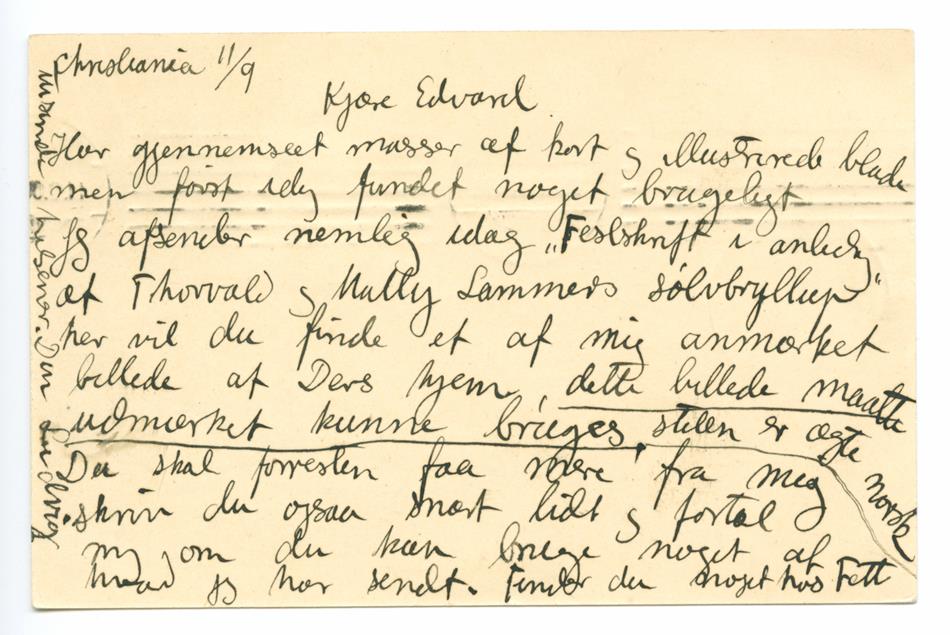 Christiania 11/9
Kjære Edvard
Har gjennemseet masser af kort og illustrerede blade
men først idag fundet noget brugeligt
Jeg afsender nemlig idag „Festskrift i anledng
af Thorvald og Mally Lammers sølvbryllup"
her vil du finde et af mig anmærket
billede af Ders hjem, dette billede maatte
udmærket kunne bruges, stilen er ægte norsk
Du skal forresten faa mere fra meg
skriv du ogsaa snart lidt og fortæl
mig om du kan bruge noget af
hvad jeg har sendt. Finder du noget hos Fett
tusinde hilsener. Din Ludvig.